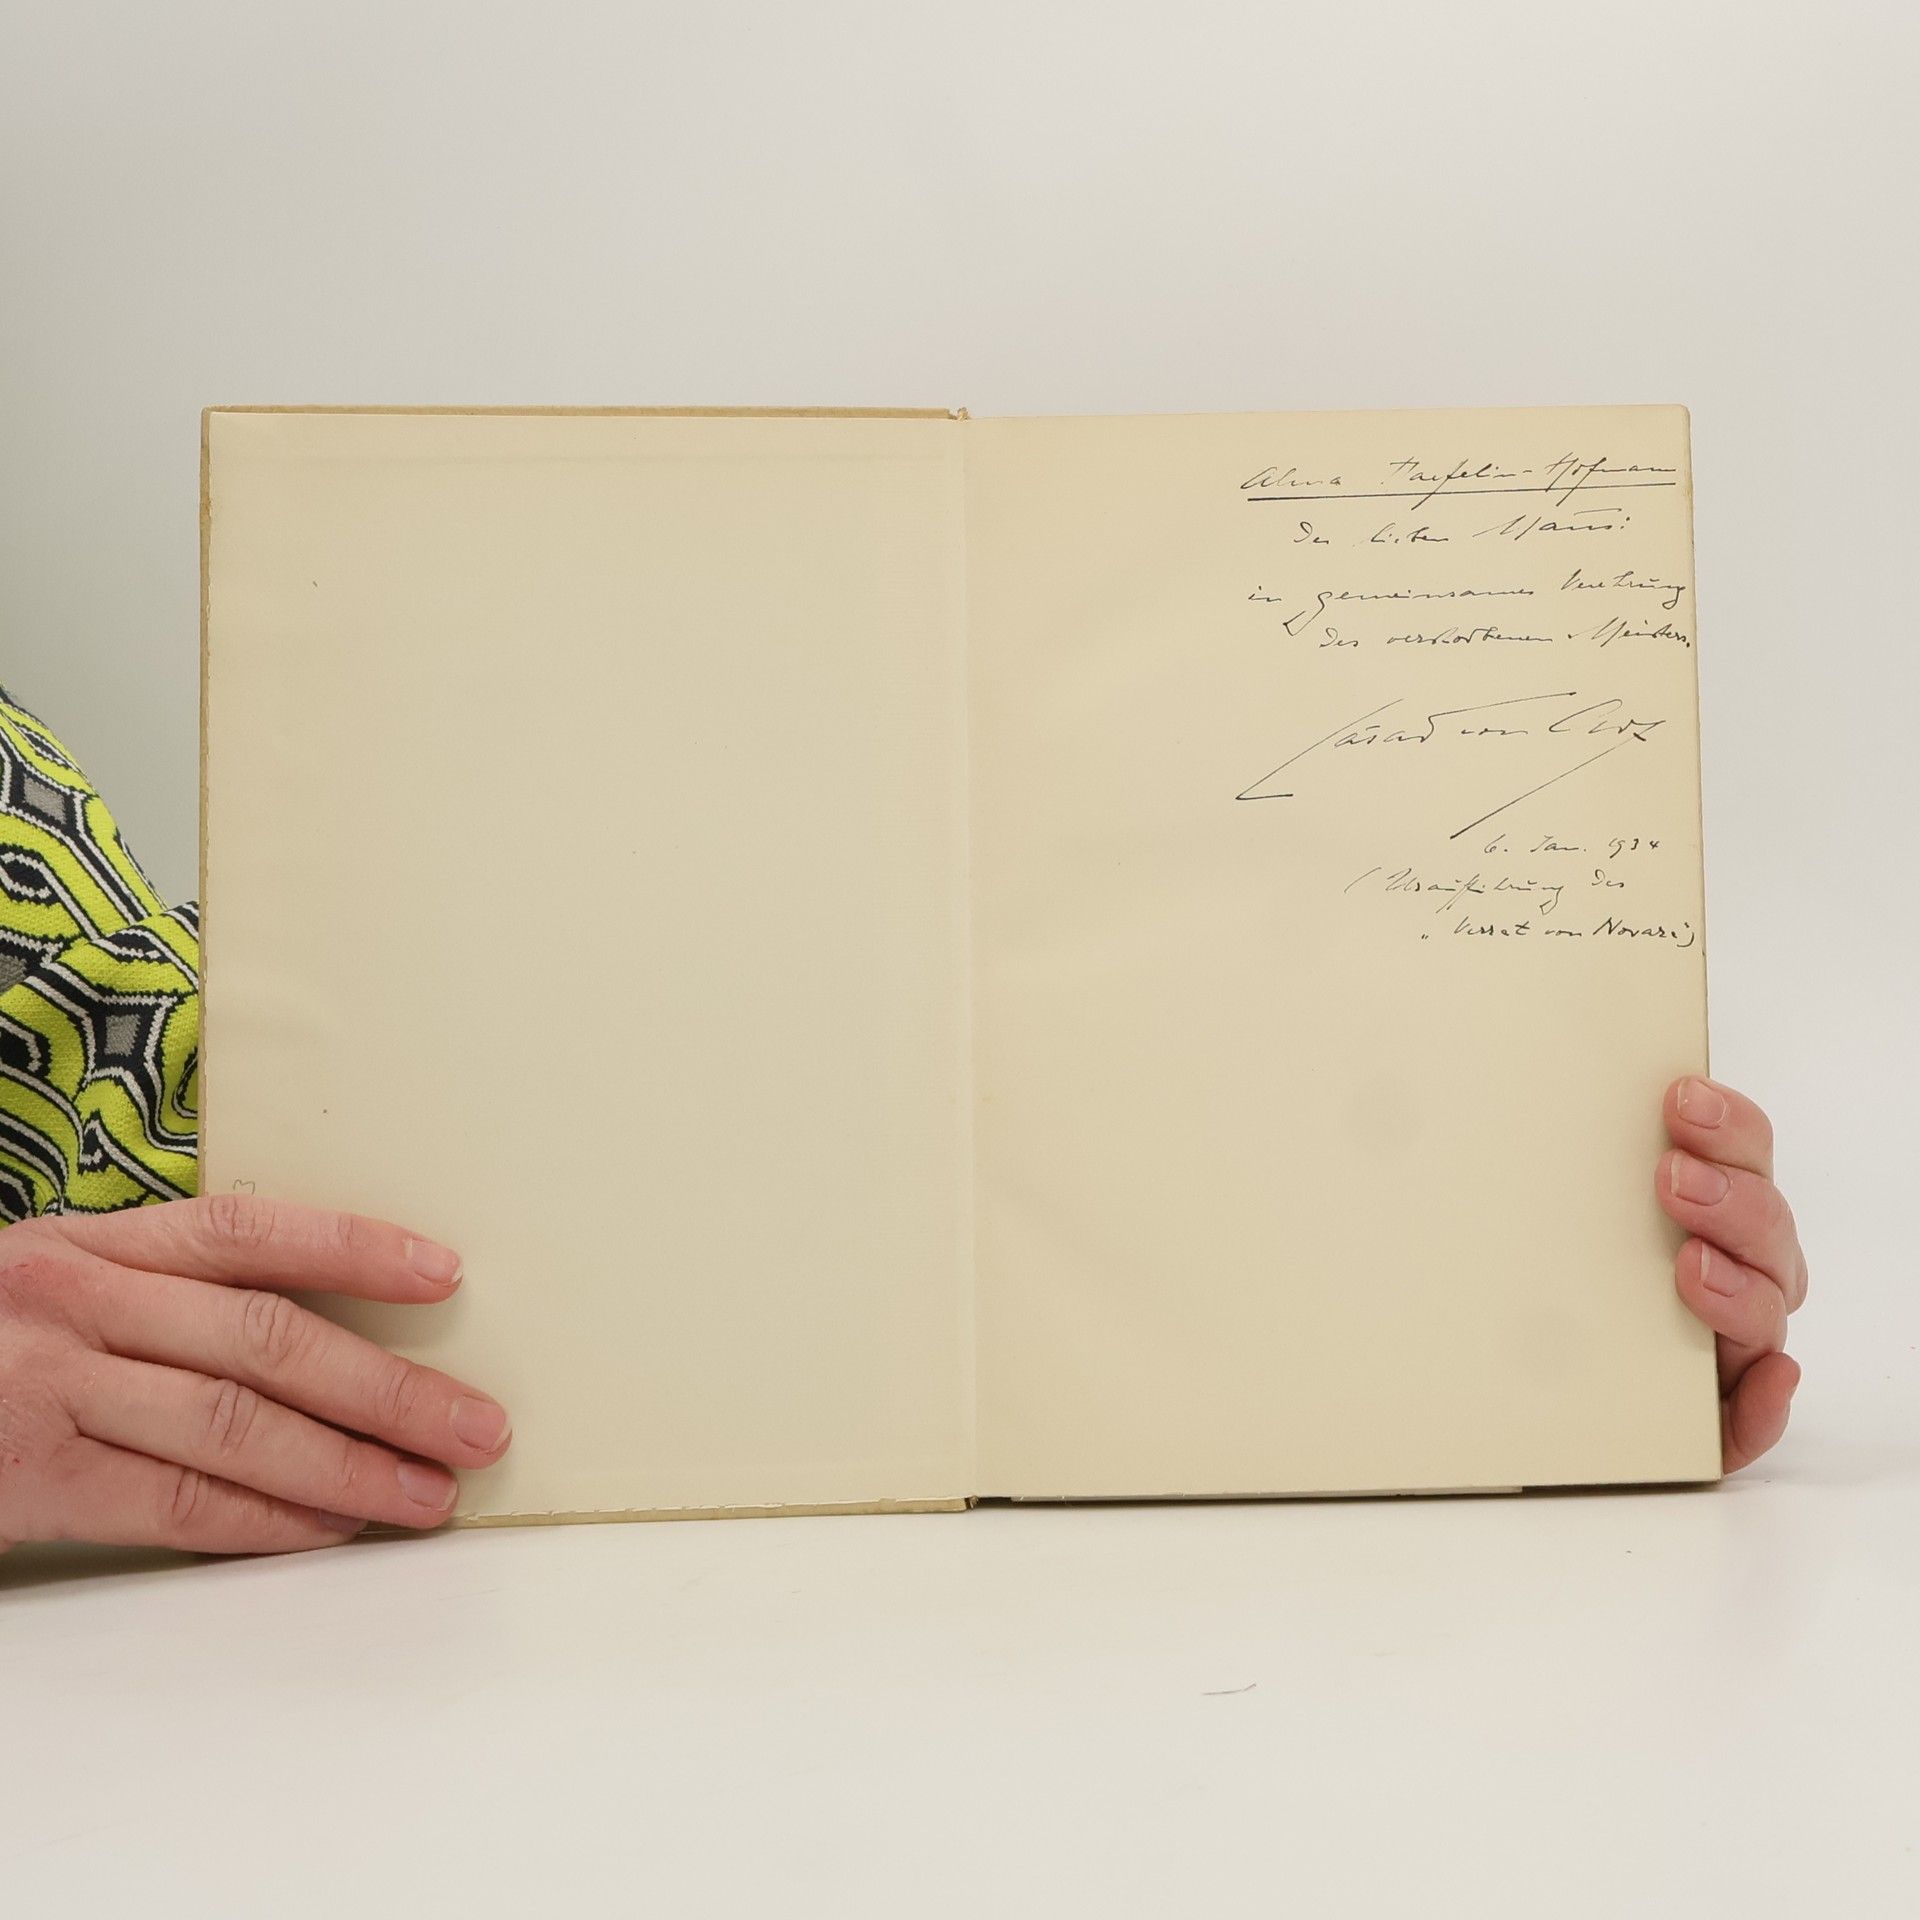 Alma Staefelin-Hofmann
Der lieben Maus:
in gemeinsamer Verehrung
des verstorbenen Meisters.
Cäsar von Arx
6. Jan. 1934
(Uraufführung des
„Verrat von Novara")
3